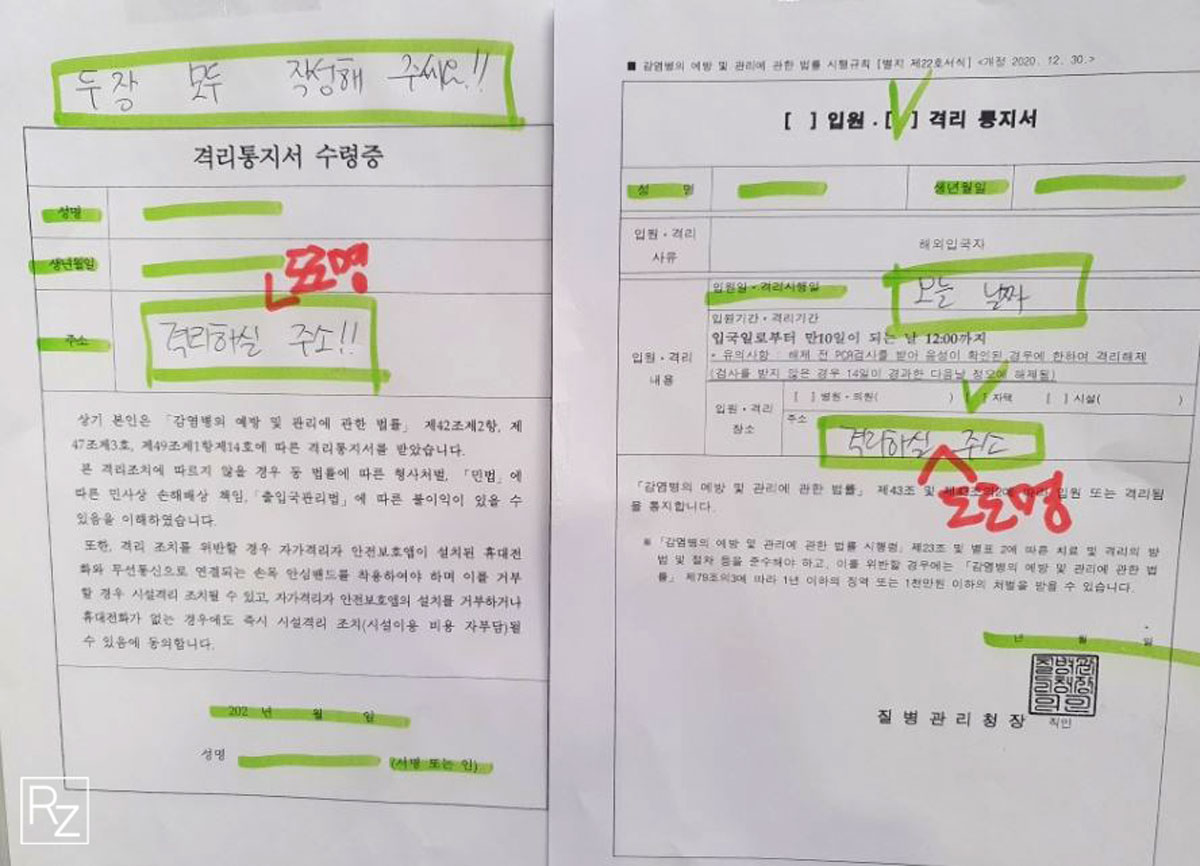 두장 모두 작성해 주세요!!
격리통지서 수령증
성명
생년월일
도로명
주소
격리하실 주소!!
상기 본인은 「감염병의 예방 및 관리에 관한 법률」 제42조제2항, 제
47조제3호, 제49조제1항제14호에 따른 격리통지서를 받았습니다.
본 격리조치에 따르지 않을 경우 동 법률에 따른 형사처벌, 「민법」에
따른 민사상 손해배상 책임, 「출입국관리법」에 따른 불이익이 있을 수
있음을 이해하였습니다.
또한, 격리 조치를 위반할 경우 자가격리자 안전보호앱이 설치된 휴대전
화와 무선통신으로 연결되는 손목 안심밴드를 착용하여야 하며 이를 거부
할 경우 시설격리 조치될 수 있고, 자가격리자 안전보호앱의 설치를 거부하거나
휴대전화가 없는 경우에도 즉시 시설격리 조치(시설이용 비용 자부담)될
수 있음에 동의합니다.
202 년 월 일
성명 (서명 또는 인)
RZ
■ 감염병의 예방 및 관리에 관한 법률 시행규칙 [별지 제22호서식] <개정 2020. 12. 30.>
[ ] 입원·[ ] 격리 통지서
성 명 생년월일
입원·격리
사유
해외입국자
입원·격리
내용
입원일·격리시행일 오늘 날짜
입원기간·격리기간
입국일로부터 만10일이 되는 날 12:00까지
* 유의사항 : 해제 전 PCR검사를 받아 음성이 확인된 경우에 한하여 격리해제
(검사를 받지 않은 경우 14일이 경과한 다음날 정오에 해제됨)
입원·격리
장소
[ ] 병원·의원( ) [ ] 자택 [ ] 시설( )
주소
격리하실 주소
도로명
「감염병의 예방 및 관리에 관한 법률」 제43조 및 제43조의2에 따라 입원 또는 격리됨
을 통지합니다.
※ 「감염병의 예방 및 관리에 관한 법률 시행령」 제23조 및 별표 2에 따른 치료 및 격리의 방
법 및 절차 등을 준수해야 하고, 이를 위반할 경우에는 「감염병의 예방 및 관리에 관한 법
률」 제79조의3에 따라 1년 이하의 징역 또는 1천만원 이하의 처벌을 받을 수 있습니다.
년 월 일
질병관리청장
직인